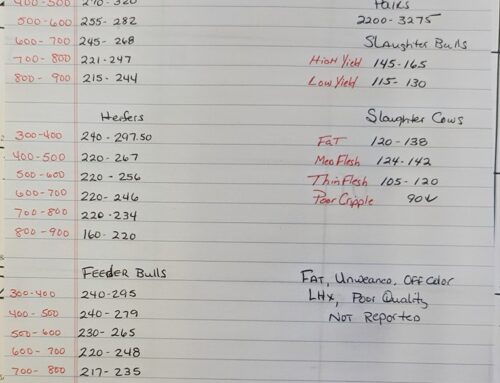 400-500 270-320
500-600 255-282
600-700 245-268
700-800 221-247
800-900 215-244
Heifers
300-400 240-297.50
400-500 220-267
500-600 220-256
600-700 220-246
700-800 220-234
800-900 160-220
Feeder Bulls
300-400 240-295
400-500 240-279
500-600 230-265
600-700 220-248
700-800 217-235
Pairs
2200-3275
Slaughter Bulls
High Yield 145-165
Low Yield 115-130
Slaughter Cows
Fat 120-138
Med Flesh 124-142
Thin Flesh 105-120
Poor Cripple 90↓
Fat, Unweaned, Off Color
LHX, Poor Quality
Not Reported